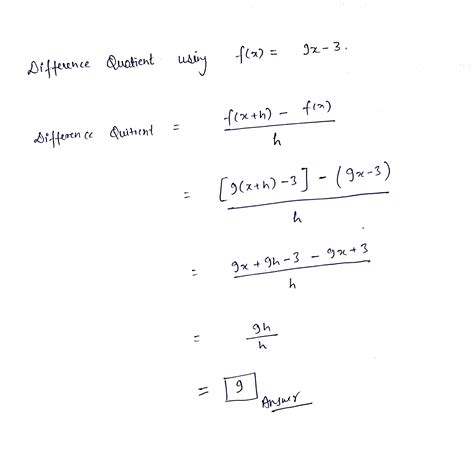 Difference Quotient using f(x) = 9x-3.
Difference Quitient = f(x+h) - f(x) / h
= [9(x+h)-3] - (9x-3) / h
= 9x+9h-3 - 9x+3 / h
= 9h / h
= 9 Answer